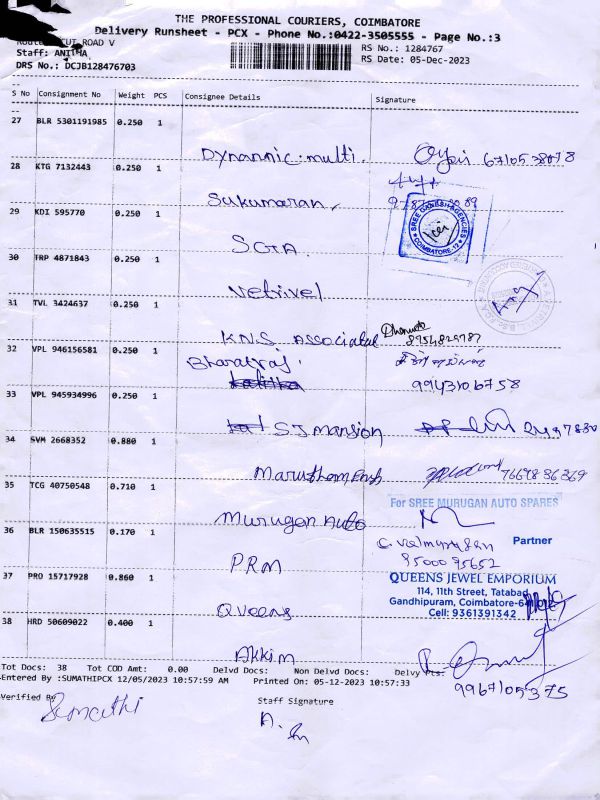 THE PROFESSIONAL COURIERS, COIMBATORE
Delivery Runsheet - PCX - Phone No.:0422-3505555 - Page No.:3
CUT ROAD V
RS No.: 1284767
Staff: ANITHA
RS Date: 05-Dec-2023
DRS No.: DCJB128476703
S No Consignment No Weight PCS Consignee Details Signature
27 BLR 5301191985 0.250 1
Dynamic.multi.
28 KTG 7132443 0.250 1
Sukumaran
29 KDI 595770 0.250 1
SREE GANESH AGENCIES
COIMBATORE
SGTA
30 TRP 4871843 0.250 1
Vetrivel
31 TVL 3424637 0.250 1
K.N.S Associated
32 VPL 946156581 0.250 1
Bharatraj
9943106758
33 VPL 945934996 0.250 1
SJ Mansion
34 SVM 2668352 0.880 1
35 TCG 40750548 0.710 1
For SREE MURUGAN AUTO SPARES
Murugan Auto
Partner
36 BLR 150635515 0.170 1
C. Velmurugan
9500095652
PRM
37 PRO 15717928 0.860 1
QUEENS JEWEL EMPORIUM
114, 11th Street, Tatabad
Gandhipuram, Coimbatore-6
Cell: 9361391342
Queens
38 HRD 50609022 0.400 1
Akkim
Tot Docs: 38 Tot COD Amt: 0.00 Delvd Docs: Non Delvd Docs: Delvy
Entered By :SUMATHIPCX 12/05/2023 10:57:59 AM Printed On: 05-12-2023 10:57:33
9967105375
Verified By
Staff Signature
Sumathi